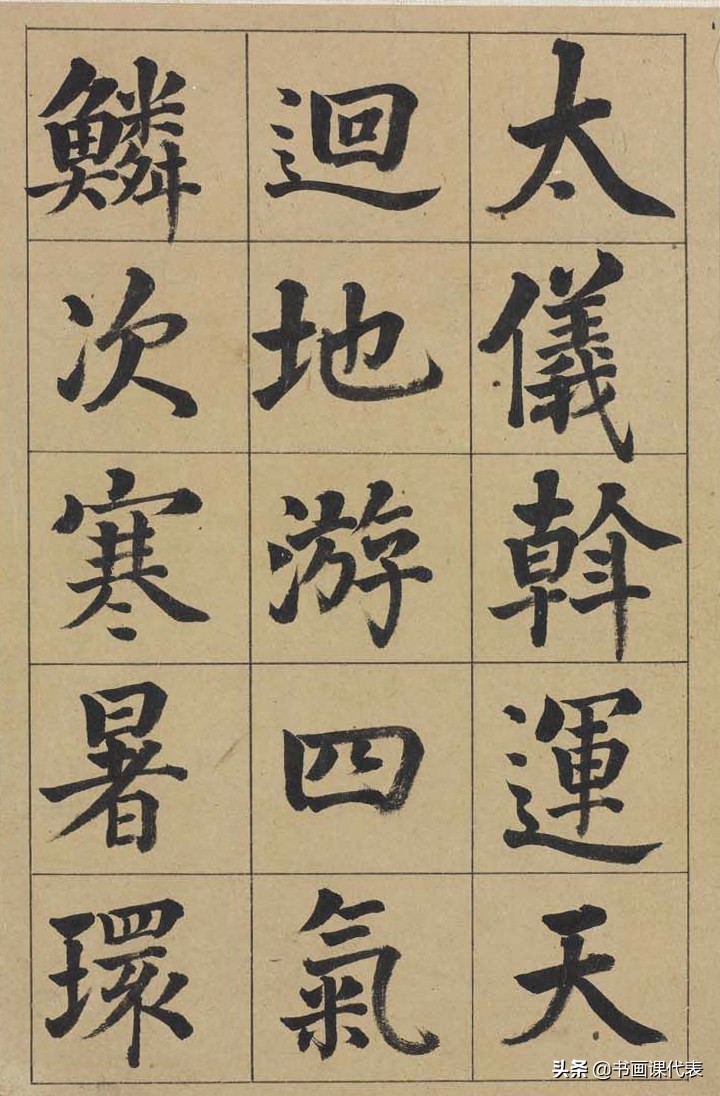 太儀斡運天
迴地游四氣
鱗次寒暑環
头条 @书画课代表